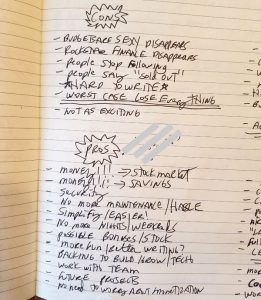 CONS
- BUDGETS ARE SEXY DISAPPEARS
- ROCKSTAR FINANCE DISAPPEARS
- PEOPLE STOP FOLLOWING
- PEOPLE SAY "SOLD OUT"
- *HARD TO WRITE*
- WORST CASE LOSE EVERYTHING
- NOT AS EXCITING
PROS
- MONEY!!! → STOCK MARKET
- MONEY!!! → SAVINGS
- SECURITY
- NO MORE MAINTENANCE/HASSLE
- SIMPLIFY/EASIER!
- NO MORE NIGHTS/WEEKENDS
- POSSIBLE BONUSES/STOCK
- "MORE FUN/BETTER WRITING?
- BACKING TO BUILD/GROW/TECH
- WORK WITH TEAM
- FUTURE PROJECTS
- NO NEED TO WORRY ABOUT MONETIZATION